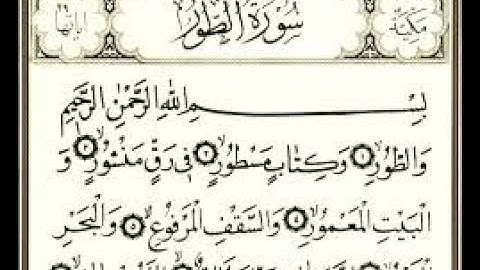 مكية سورة الطور آياتها
بسم الله الرحمن الرحيم
والطور ١ وكتاب مسطور ٢ في رق منشور ٣ و
البيت المعمور ٤ والسقف المرفوع ٥ والبحر